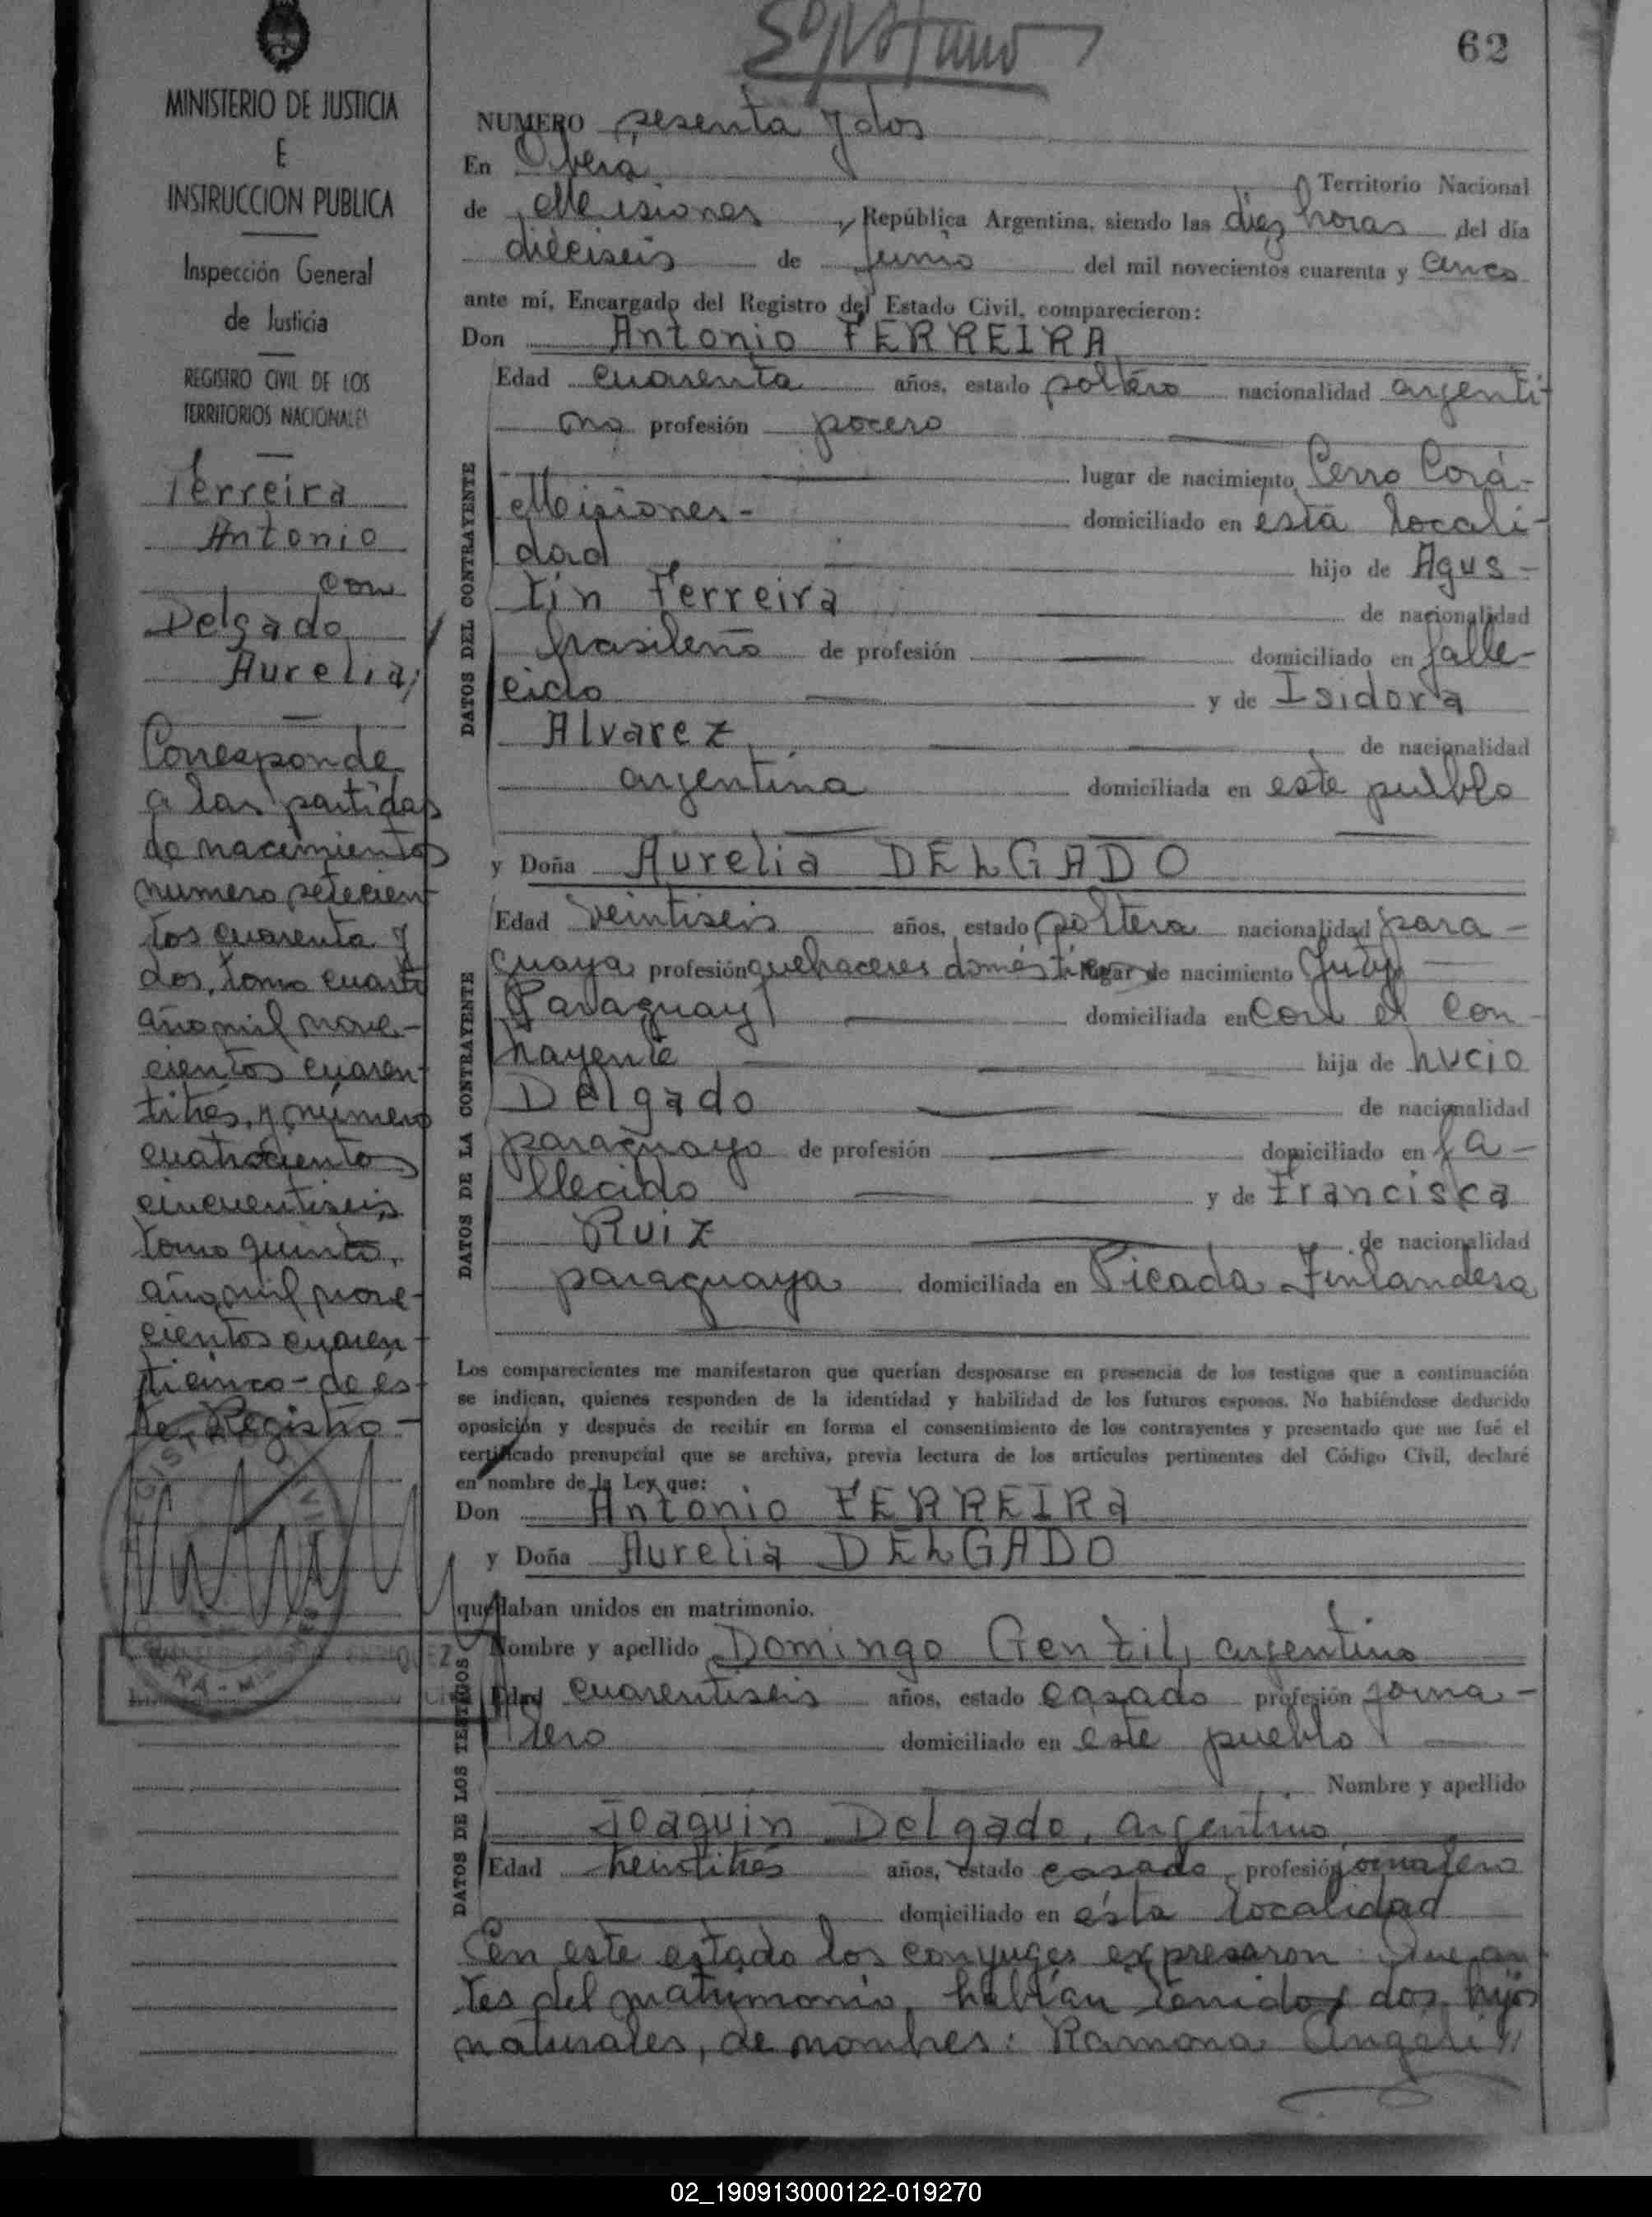 62
MINISTERIO DE JUSTICIA
E
INSTRUCCION PUBLICA
Inspección General
de Justicia
REGISTRO CIVIL DE LOS
TERRITORIOS NACIONALES
Ferreira
Antonio
con
Delgado
Aurelia,
Corresponde
a las partidas
de nacimientos
numero setecien
tos cuarenta y
dos, tomo cuarto
año mil nove-
cientos cuaren
titrés, y número
cuatrocientos
cincuentiseis
tomo quinto,
año mil nove-
cientos cuaren
ticinco - de és
te Registro -
NUMERO sesenta y dos
En Oberá Territorio Nacional
de Misiones, República Argentina, siendo las diez horas del día
dieciseis de Junio del mil novecientos cuarenta y cinco
ante mí, Encargado del Registro del Estado Civil, comparecieron:
Don Antonio FERREIRA
DATOS DEL CONTRAYENTE
Edad cuarenta años, estado soltero nacionalidad argenti-
no profesión pocero
lugar de nacimiento Cerro Corá-
Misiones- domiciliado en esta locali-
dad hijo de Agus-
tín Ferreira de nacionalidad
brasileño de profesión domiciliado en falle-
cido y de Isidora
Alvarez de nacionalidad
argentina domiciliada en este pueblo
y Doña Aurelia DELGADO
DATOS DE LA CONTRAYENTE
Edad veintiseis años, estado soltera nacionalidad para-
guaya profesión quehaceres domésticos lugar de nacimiento Yuty
Paraguay domiciliada en con el con
trayente hija de Lucio
Delgado de nacionalidad
paraguayo de profesión domiciliado en fa-
llecido y de Francisca
Ruiz de nacionalidad
paraguaya domiciliada en Picada Finlandesa
Los comparecientes me manifestaron que querían desposarse en presencia de los testigos que a continuación
se indican, quienes responden de la identidad y habilidad de los futuros esposos. No habiéndose deducido
oposición y después de recibir en forma el consentimiento de los contrayentes y presentado que me fué el
certificado prenupcial que se archiva, previa lectura de los artículos pertinentes del Código Civil, declaré
en nombre de la Ley que:
Don Antonio FERREIRA
y Doña Aurelia DELGADO
quedaban unidos en matrimonio.
DATOS DE LOS TESTIGOS
Nombre y apellido Domingo Gentil, argentino
Edad cuarentiseis años, estado casado profesión jorna-
lero domiciliado en este pueblo
Nombre y apellido
Joaquín Delgado, argentino
Edad treintitrés años, estado casado profesión jornalero
domiciliado en ésta localidad
en este estado los conyuges expresaron: Que an
tes del matrimonio, habían tenido dos hijos
naturales, de nombres: Ramona Angeli
02_190913000122-019270